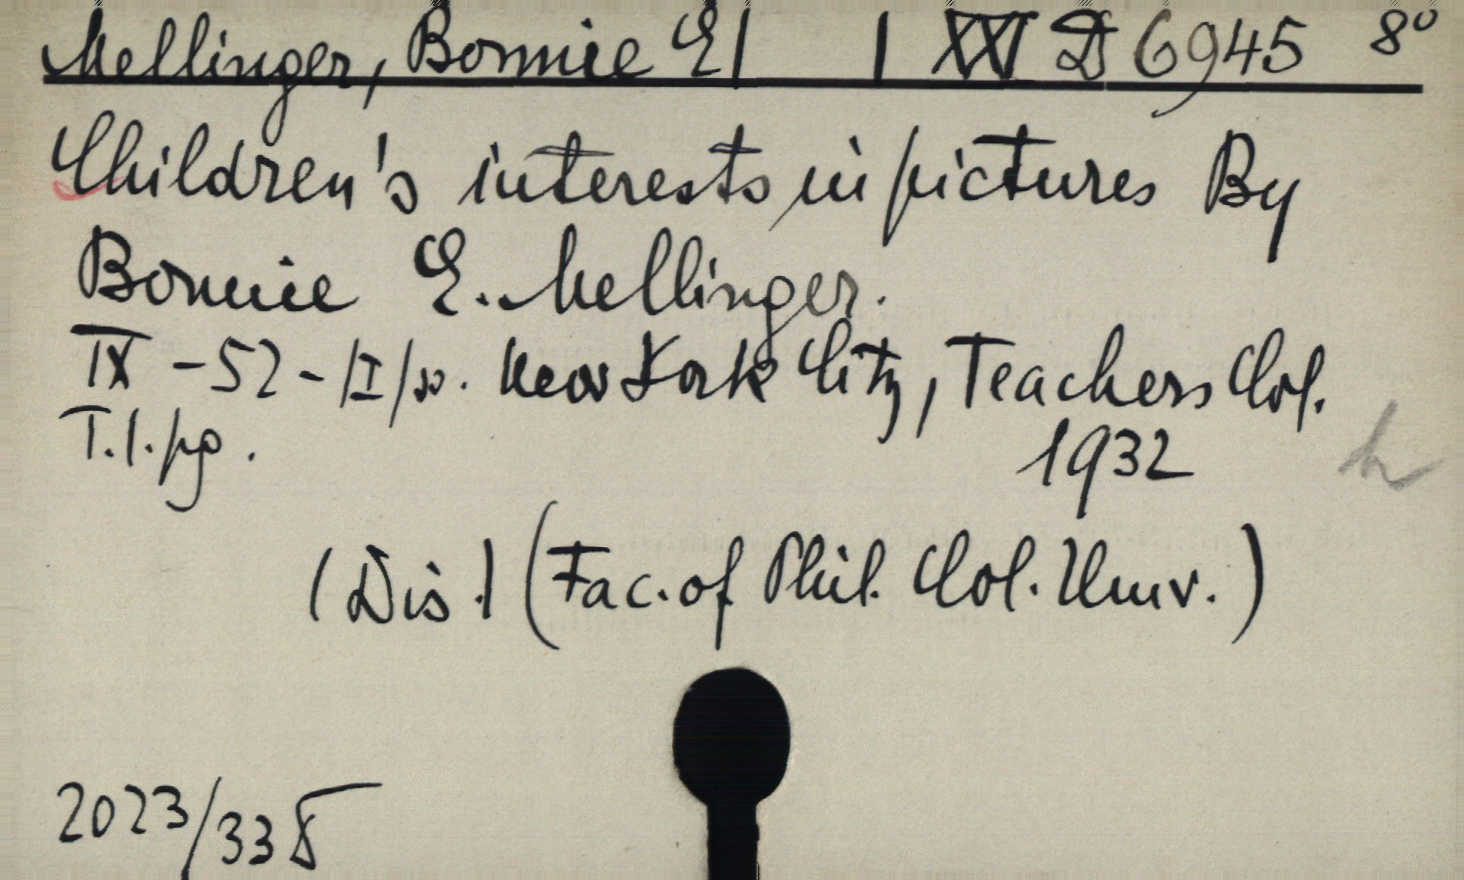 Mellinger, Bonnie E| | XXI D 6945 8°
Children's interests in pictures By
Bonnie E. Mellinger.
IX - 52 - /I/ New York City, Teachers Col.
T. l. pg. 1932
(Dis.) (Fac. of Phil. Col. Univ.)
2023/338